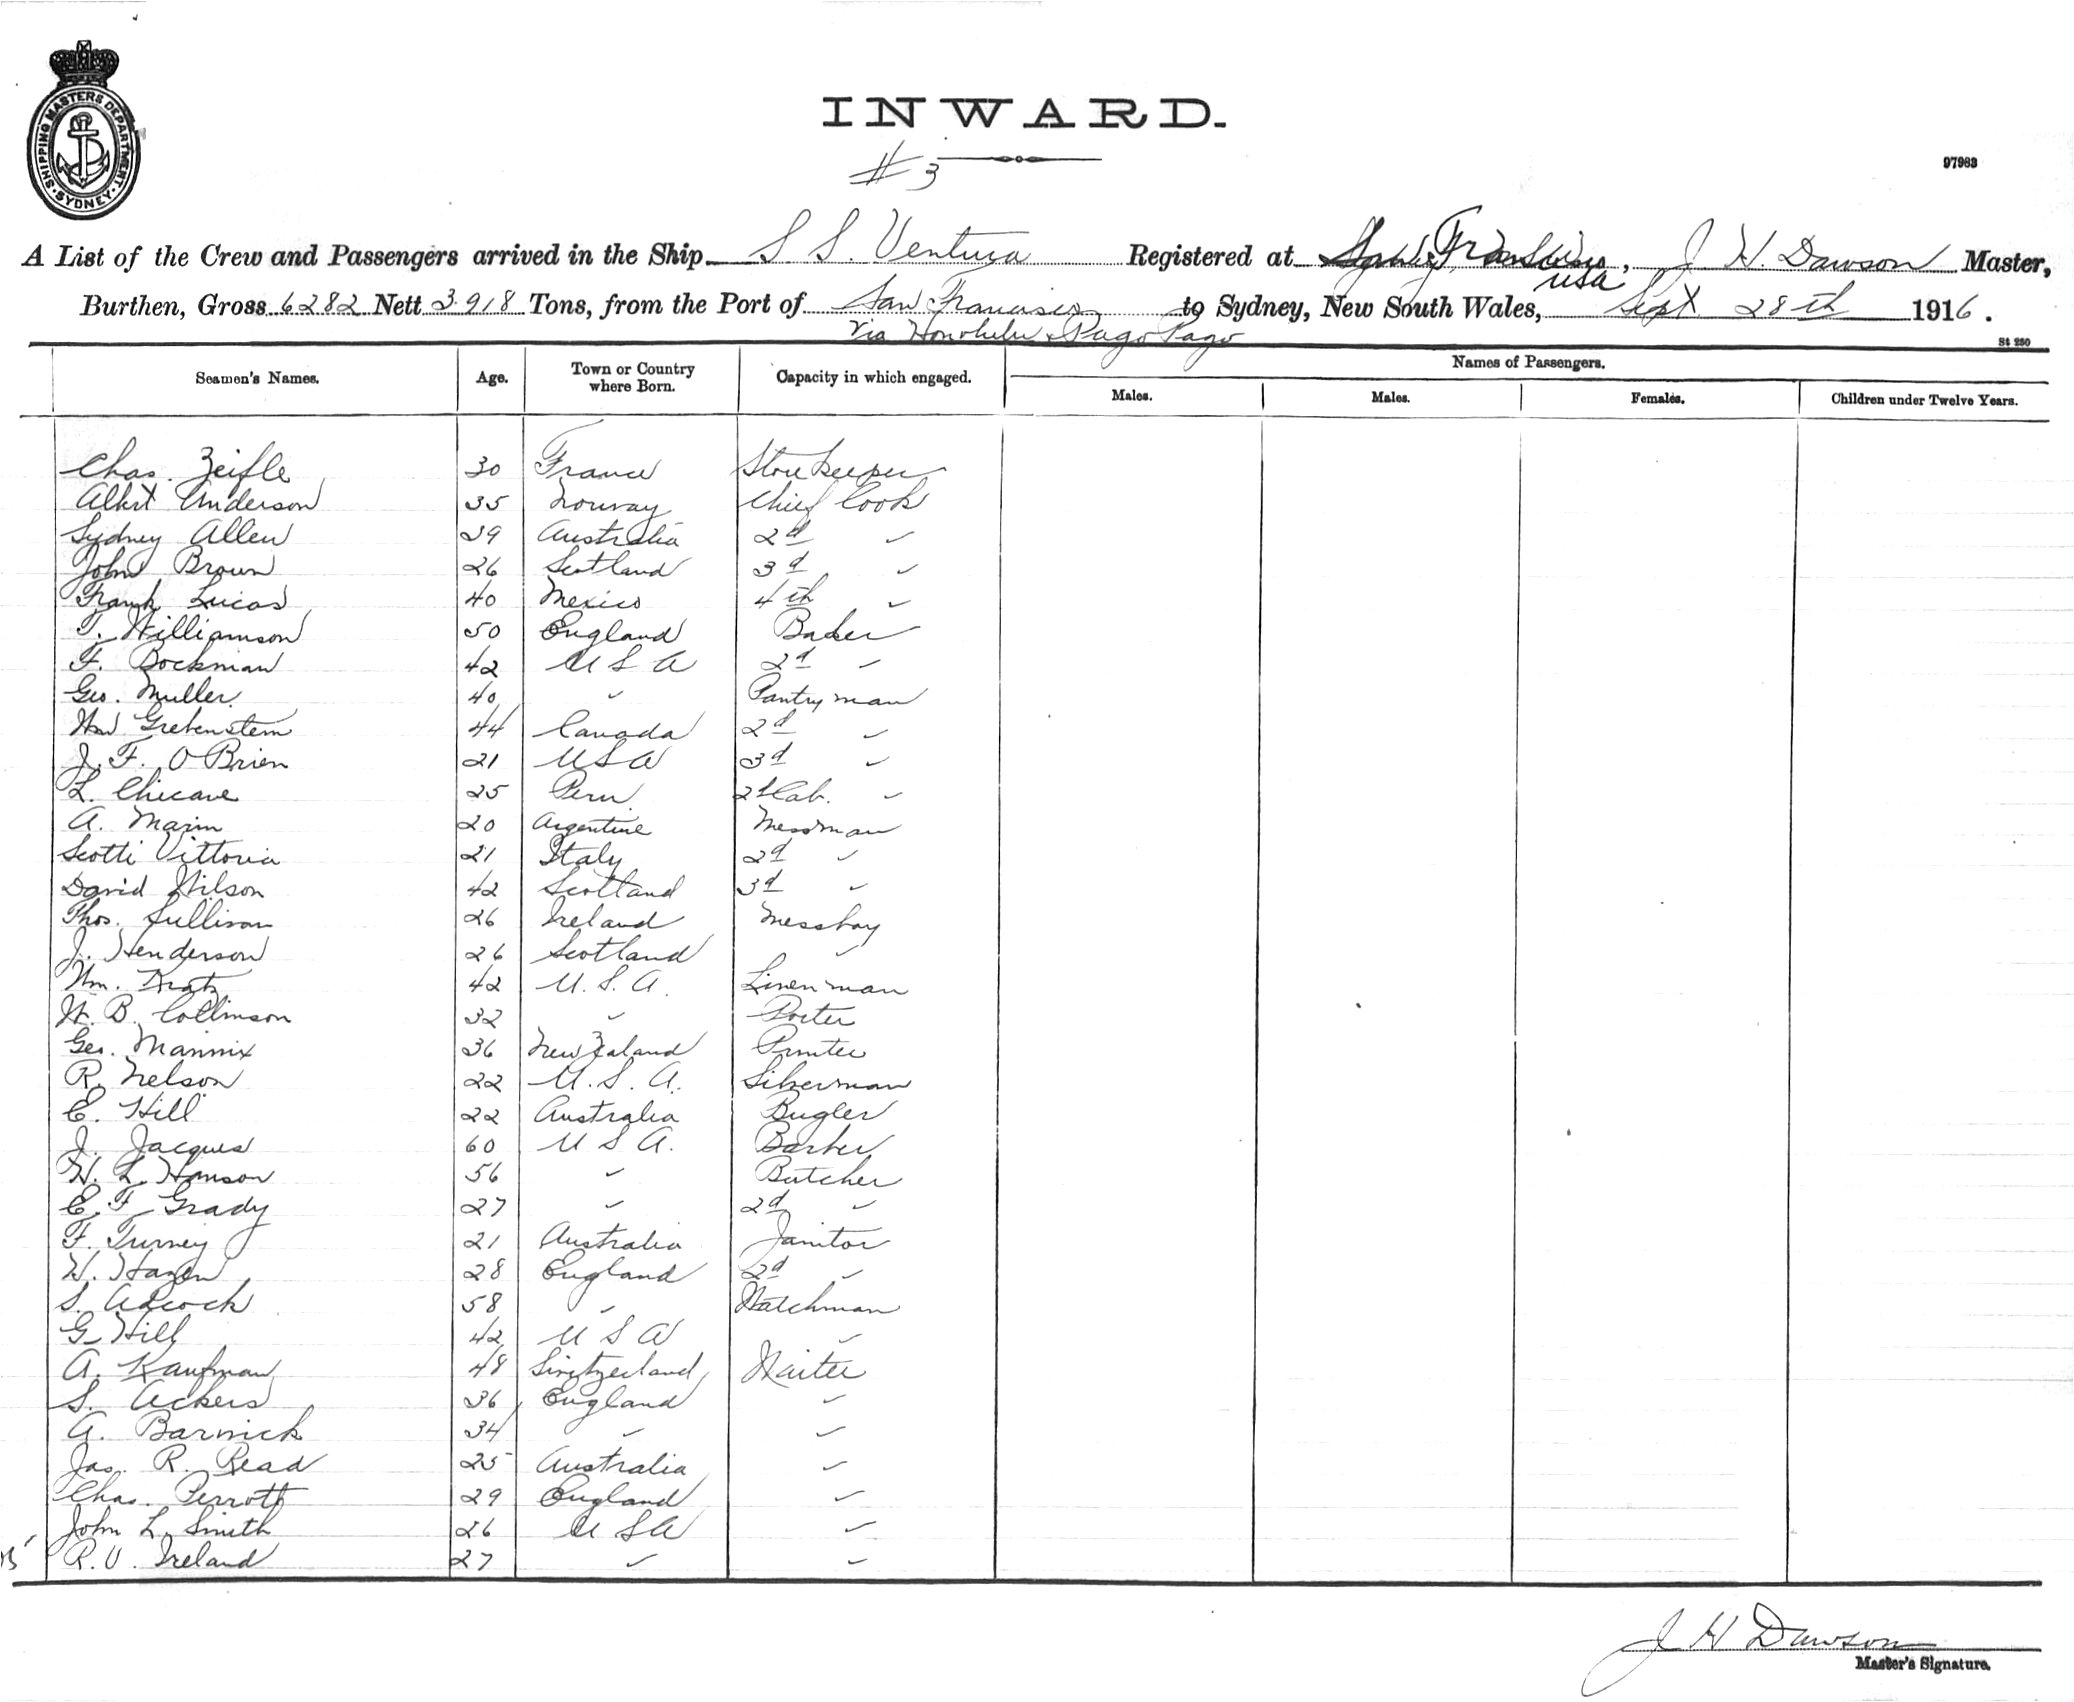 SHIPPING MASTERS DEPARTMENT. SYDNEY.
INWARD.
# 3
97983
A List of the Crew and Passengers arrived in the Ship S S. Ventura Registered at San Francisco, J H Dawson Master,
USA
Burthen, Gross 6282 Nett 3918 Tons, from the Port of San Francisco to Sydney, New South Wales, Sept 28th 1916.
via Honolulu & Pago Pago
St 280
Seamen's Names. Age. Town or Country where Born. Capacity in which engaged. Names of Passengers.
Males. Males. Females. Children under Twelve Years.
Chas. Zeifle 30 France Storekeeper
Albert Anderson 35 Norway Chief Cook
Sydney Allen 29 Australia 2d "
John Brown 26 Scotland 3d "
Frank Lucas 40 Mexico 4th "
T. Williamson 50 England Baker
F. Bockman 42 U S A 2d "
Geo. Muller 40 " Pantryman
Wm Grebenstein 44 Canada 2d "
J. F. O'Brien 21 U S A 3d "
L. Chicave 25 Peru 2d Cab. "
A. Marin 20 Argentine Messman
Scotti Vittoria 21 Italy 2d "
David Wilson 42 Scotland 3d "
Thos. Sullivan 26 Ireland Messboy
J. Henderson 26 Scotland "
Wm. Kratz 42 U. S. A. Linenman
W. B. Collinson 32 " Porter
Geo. Mannix 36 New Zealand Printer
R. Nelson 22 U. S. A. Silverman
E. Hill 22 Australia Bugler
J. Jacques 60 U S A. Barber
W. L. Hanson 56 " Butcher
E. F. Grady 27 " 2d "
F. Turney 21 Australia Janitor
W. Hazen 28 England 2d "
S. Adcock 58 " Watchman
G Hill 42 U S A "
A. Kaufman 48 Switzerland Waiter
S. Ackers 36 England "
A. Barwick 34 " "
Jas. R. Read 25 Australia "
Chas. Perrott 29 England "
John L. Smith 26 U S A "
R. V. Ireland 27 " "
J H Dawson
Master's Signature.